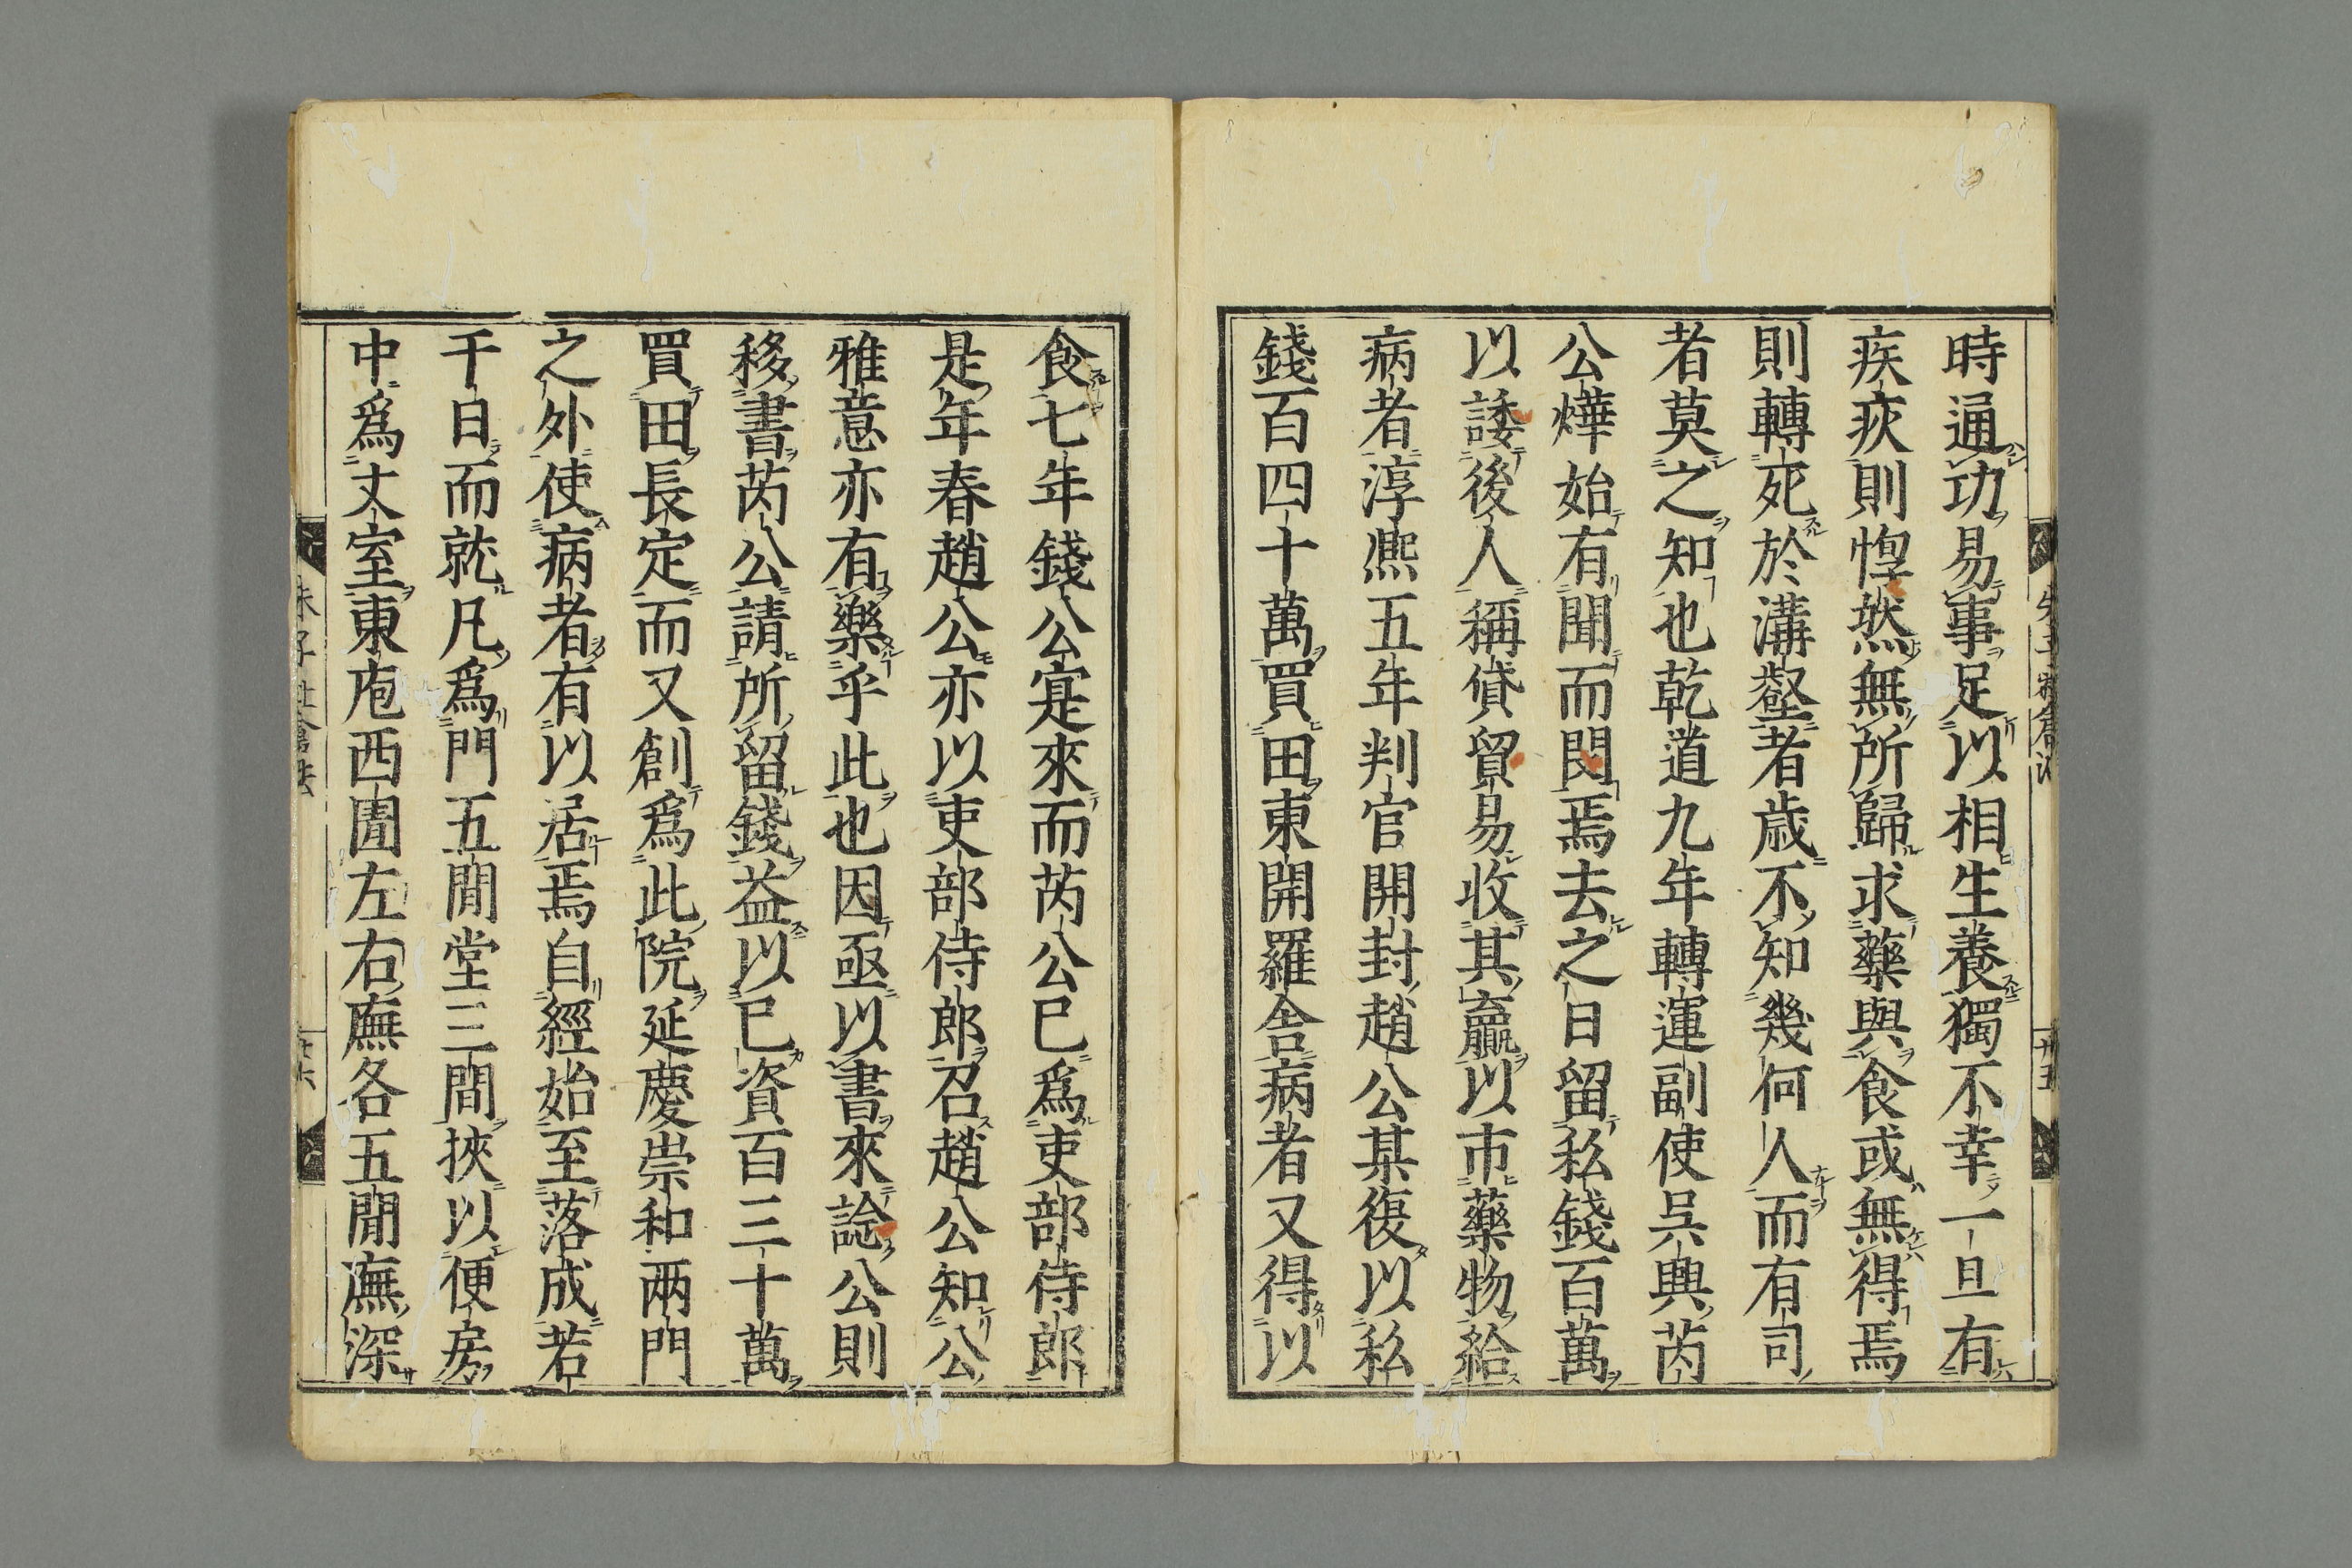 時通功易事足以相生養獨不幸一旦有
疾疢則惸然無所歸求藥與食或無得焉
則轉死於溝壑者歳不知幾何人而有司
者莫之知也乾道九年轉運副使呉興芮
公燁始有聞而閔焉去之日留私錢百萬
以諉後人稱貸貿易收其贏以市藥物給
病者淳熈五年判官開封趙公某復以私
錢百四十萬買田東開羅舎病者又得以
食七年錢公寔來而芮公巳爲吏部侍郎
是年春趙公亦以吏部侍郎召趙公知公
雅意亦有樂乎此也因亟以書來諗公則
移書芮公請所留錢益以巳資百三十萬
買田長定而又創爲此院延慶崇和兩門
之外使病者有以居焉自經始至落成若
干日而就凡爲門五間堂三間挾以便房
中爲丈室東庖西圊左右廡各五間廡深
朱子社倉法